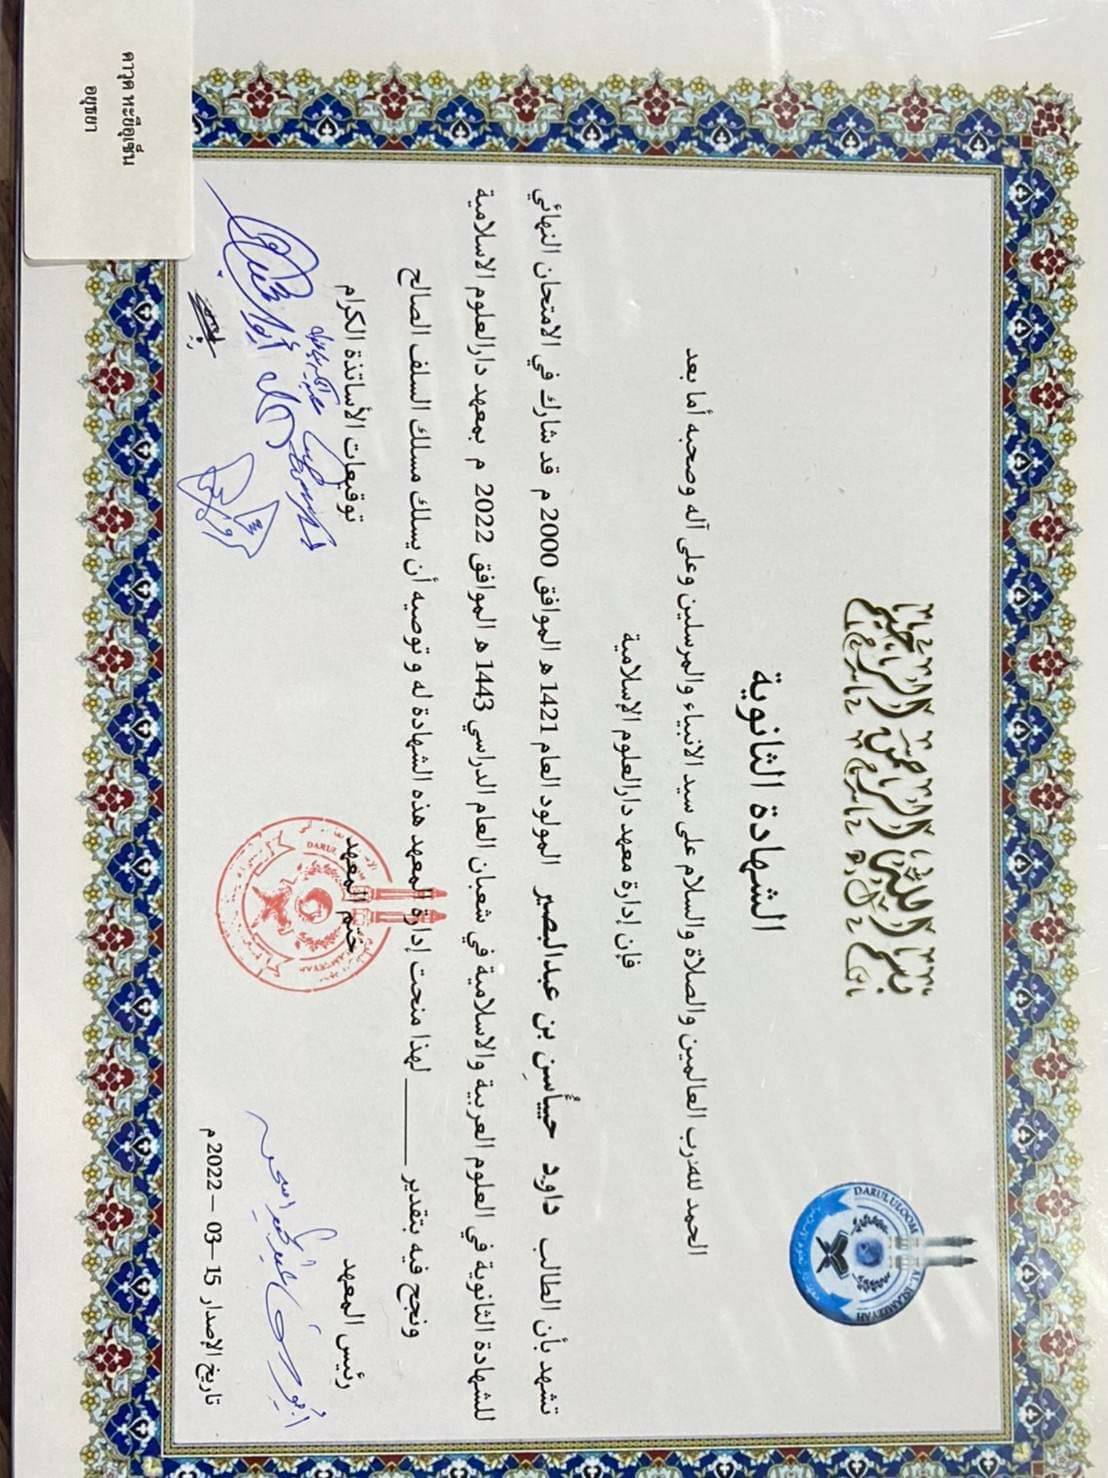 بسم الله الرحمن الرحيم
DARUL ULOOM
AL-ISLAMIYAH
الشهادة الثانوية
الحمد لله رب العالمين والصلاة والسلام على سيد الانبياء والمرسلين وعلى آله وصحبه أما بعد
فإن إدارة معهد دارالعلوم الإسلامية
تشهد بأن الطالب داود حيأسن بن عبدالبصير المولود العام 1421 ه الموافق 2000 م قد شارك في الامتحان النهائي
للشهادة الثانوية في العلوم العربية والاسلامية في شعبان العام الدراسي 1443 ه الموافق 2022 م بمعهد دارالعلوم الاسلامية
ونجح فيه بتقدير ______ لهذا منحت إدارة المعهد هذه الشهادة له و توصيه أن يسلك مسلك السلف الصالح
رئيس المعهد
ختم المعهد
توقيعات الأساتذة الكرام
تاريخ الإصدار 15 – 03 – 2022 م
ดาวุด หะยีอูเซ็น
อยุธยา